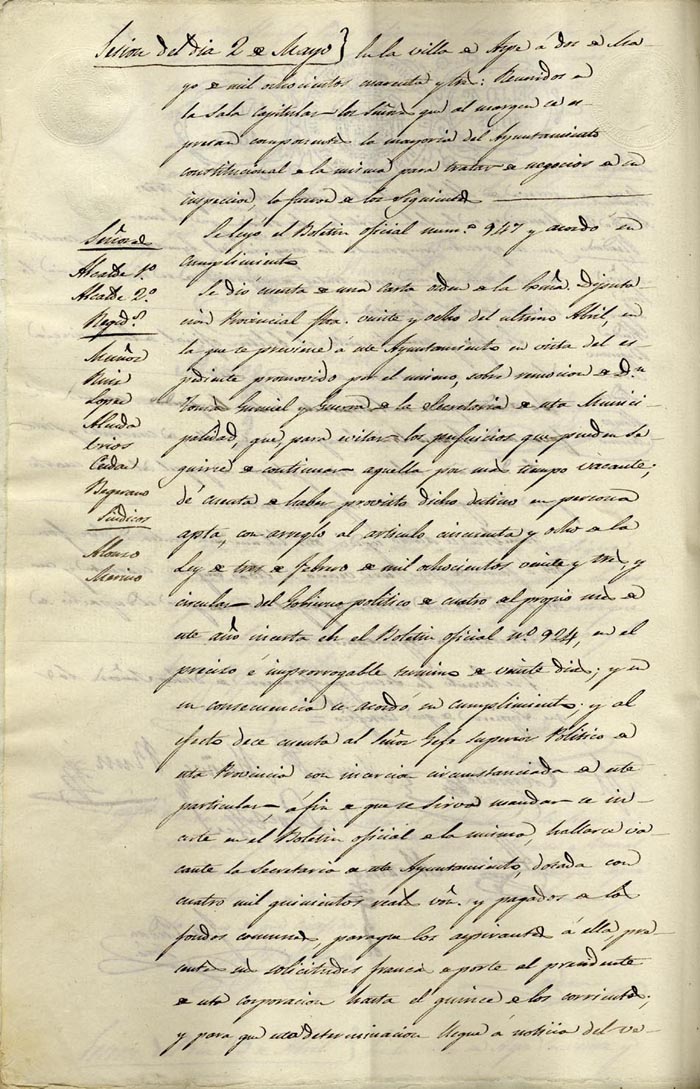 Sesion del dia 2 de Mayo} En la villa de Aspe á dos de Ma-
yo de mil ochocientos cuarenta y tres: Reunidos en
la Sala Capitular los Señores que al margen se es-
presan componentes la mayoria del Ayuntamiento
constitucional de la misma para tratar de negocios de su
inspeccion, lo fueron de los siguientes
Se leyó el Boletin oficial num.º 947 y acordó su
cumplimiento
Señores
Alcalde 1.º
Alcalde 2.º
Regid.s
Muñoz
Ruiz
Lopez
Almida
Erios
Cedar
Begerano
Síndicos
Alonso
Merino
Se dió cuenta de una carta orden de la Exma. Diputa-
cion Provincial fha. veinte y ocho del ultimo Abril, en
la que se previene a este Ayuntamiento en vista del es-
pediente promovido por el mismo, sobre remocion de Dn
Gumiel y de la Secretaria de esta Munici-
palidad, que para evitar los perjuicios que pueden se-
guirse de continuar aquella por mas tiempo vacante,
dé cuenta de haber provisto dicho destino en persona
apta, con arreglo al articulo cincuenta y ocho de la
Ley de tres de febrero de mil ochocientos veinte y tres, y
circular del Gobierno politico de cuatro del propio mes de
este año inserta en el Boletin oficial nº. 924, en el
preciso é improrrogable termino de veinte dias; y en
su consecuencia se acordó su cumplimiento, y al
efecto dese cuenta al Señor Gefe superior Politico de
esta Provincia con incersion circumstanciada de este
particular, á fin de que se sirva mandar se in-
serte en el Boletin oficial de la misma, hallarse va-
cante la Secretaria de este Ayuntamiento, dotada con
cuatro mil quinientos reales von. y pagados de los
fondos comunes, paraque los aspirantes á ella, pre-
senten sus solicitudes francas de porte al presidente
de esta corporacion hasta el quince de los corrientes,
y para que esta determinacion llegue á noticia del ve-